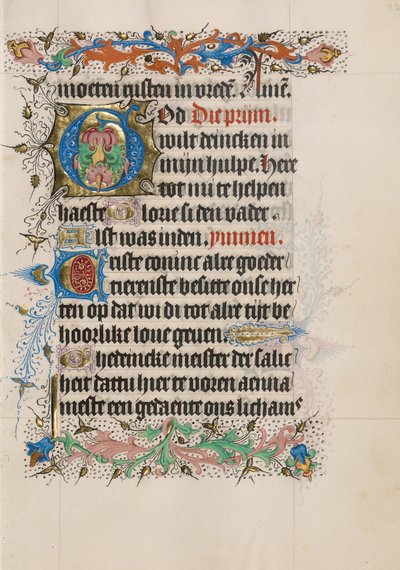 moeten rusten in vrede. Amē.
God Die prijm.
wilt deincken in
mijn hulpe. Here
tot mi te helpen
haeste Glorie si den vader.
Alst was inden. ymmen.
Criste comme alre goeder
tierenste besitte onse her
ten op dat wi di tot alre tijt be
hoorlike loue geuen
Ghedincke meister der salic
heit dattu hier te voren aenna
meste een gedaente ons lichams